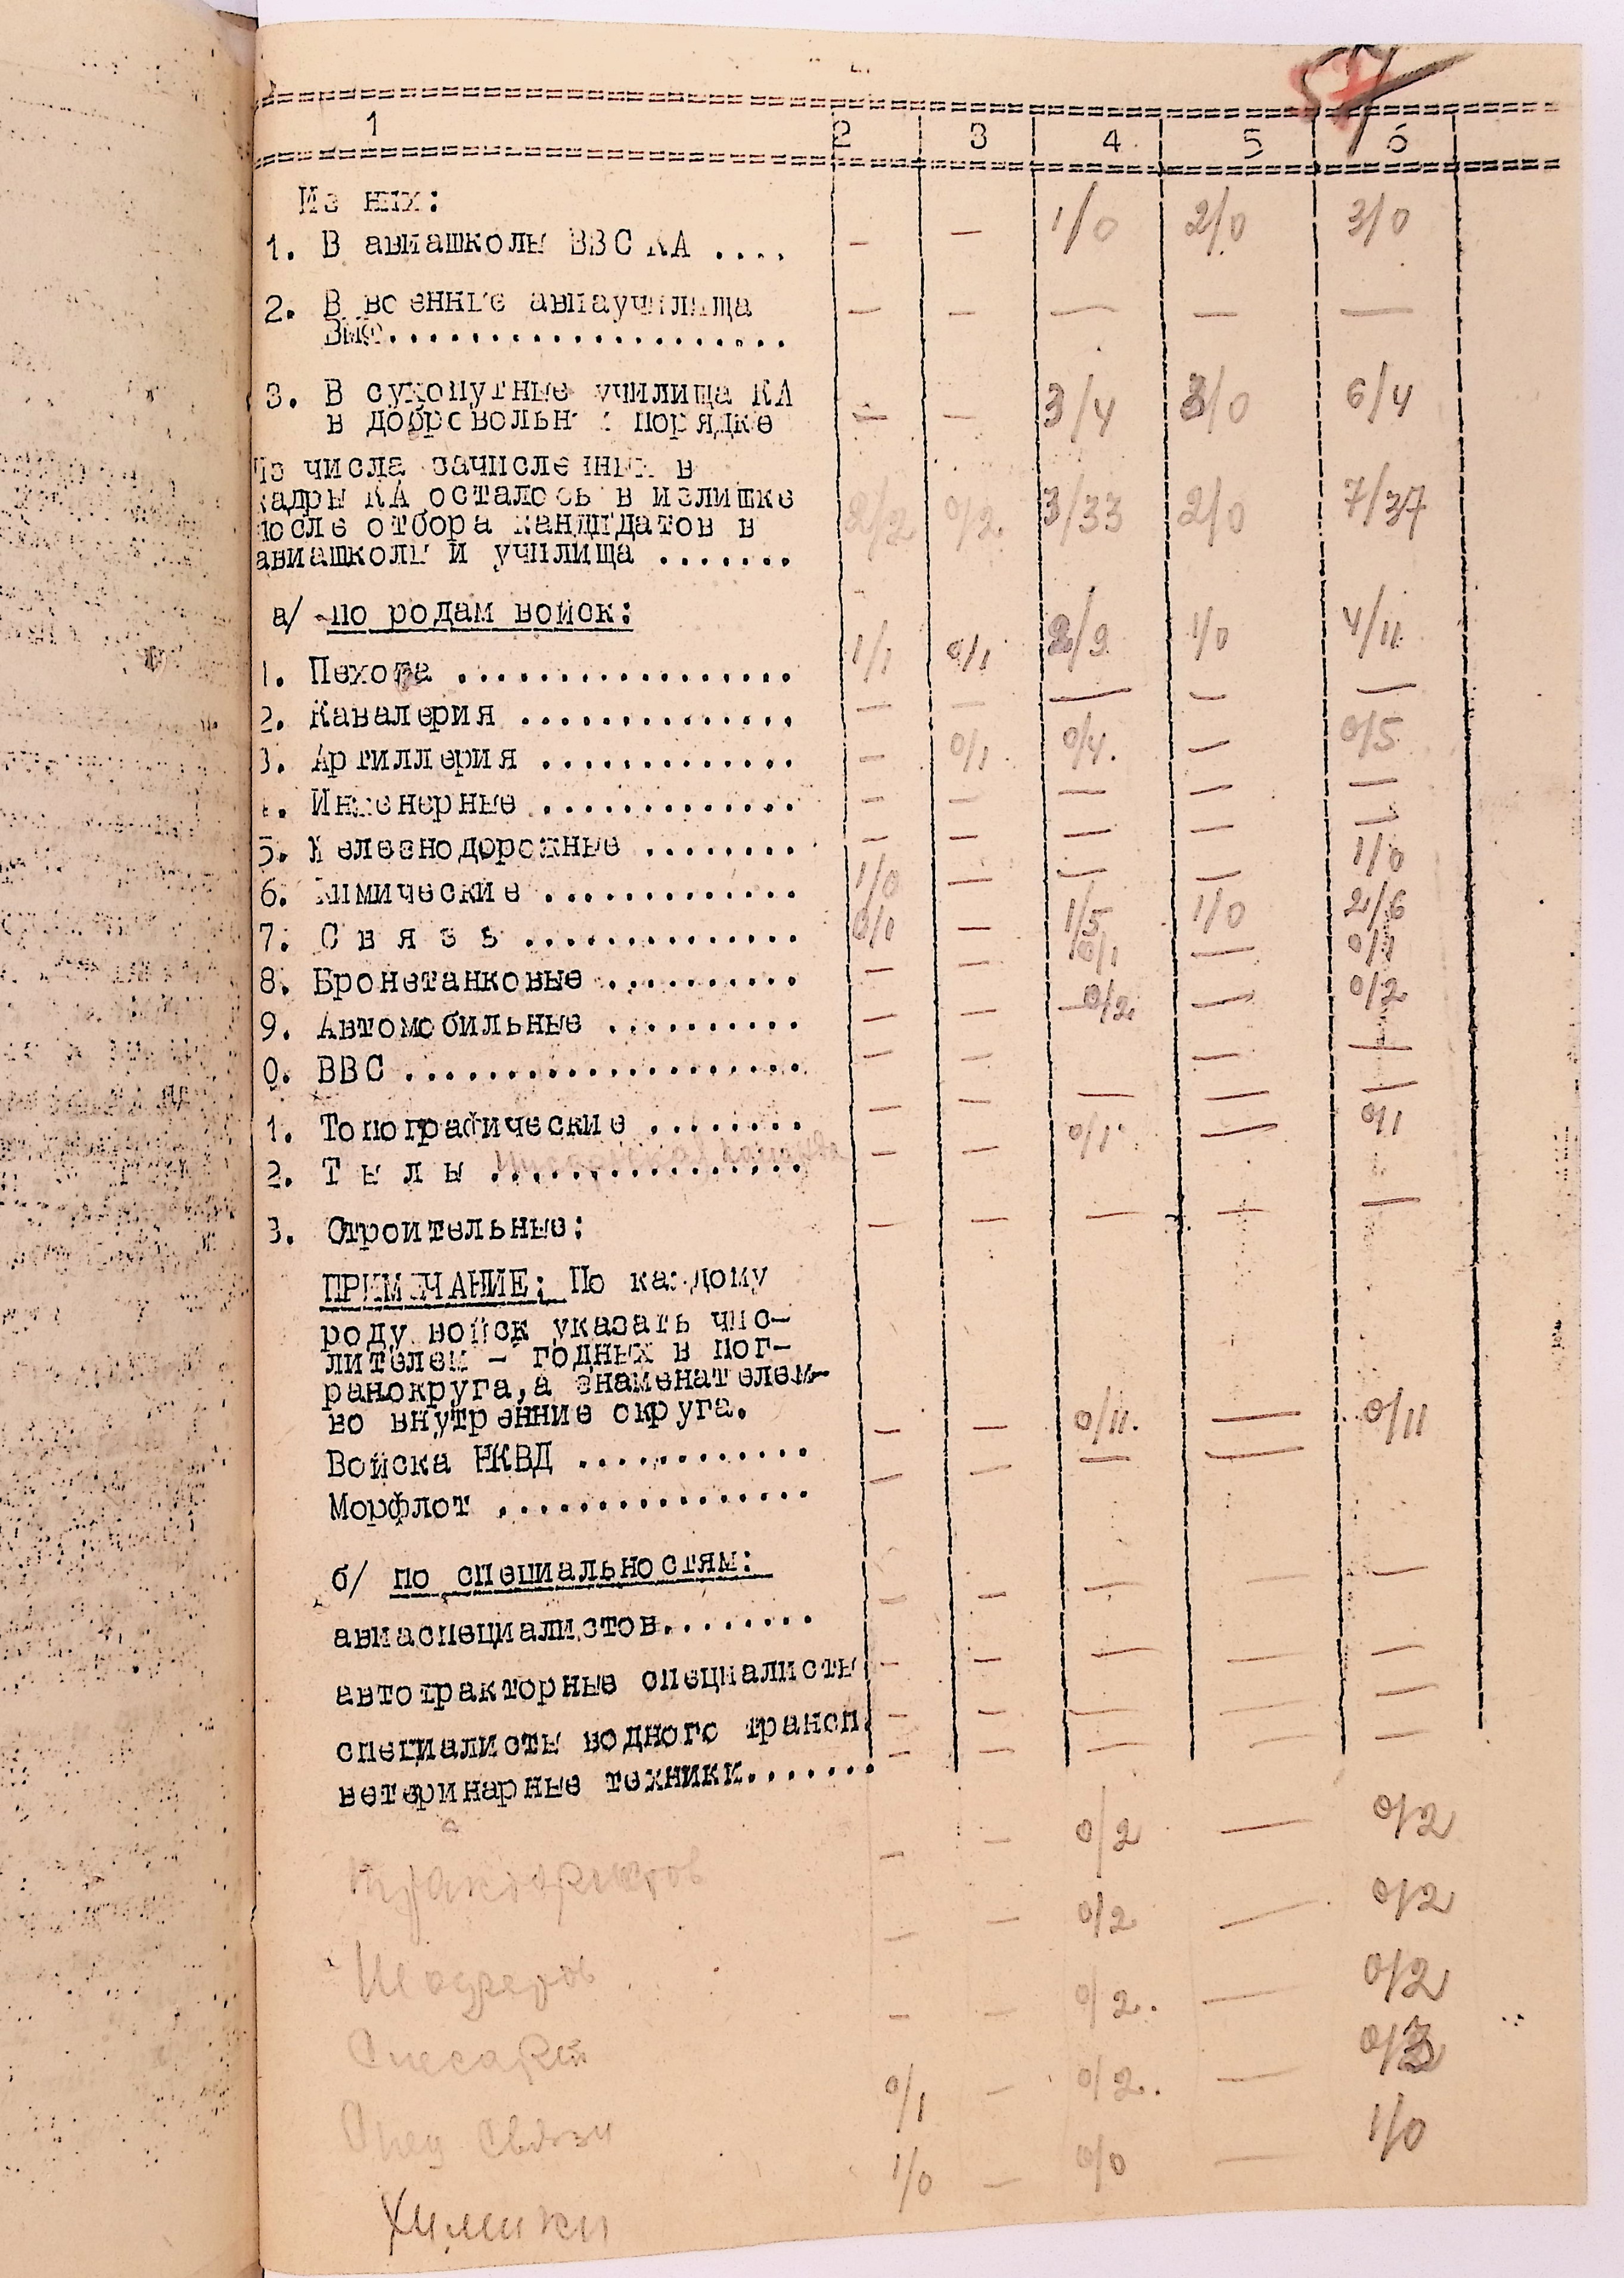 1 2 3 4. 5 6
Из них:
1. В авиашколы ВВС КА .... – – 1/0 2/0 3/0
2. В военные авиаучилища
ВМФ.................... – – – – –
3. В сухопутные училища КА
в добровольн порядке – – 3/4 3/0 6/4
Из числа зачисленных в
кадры КА осталось в излишке
после отбора кандидатов в
авиашколы и училища ....... 2/2 0/2. 3/33 2/0 7/37
а/ по родам войск:
1. Пехота ................. 1/1 0/1 2/9 1/0 4/11
2. Кавалерия .............. – – – – –
3. Артиллерия ............. – 0/1 0/4. – 0/5
4. Инженерные ............. – – – – –
5. Железнодорожные ........ – – – – –
6. Химические ............. 1/0 – – – 1/0
7. С в я з ь .............. 0/1 – 1/5 1/0 2/6
8. Бронетанковые .......... – – 0/1 – 0/1
9. Автомобильные .......... – – 0/2. – 0/2
0. ВВС .................... – – – –
1. Топографические ........ – – – – –
2. Т ы л ы ................ команда – – 0/1 – 0/1
3. Строительные: – – – – –
ПРИМЕЧАНИЕ: По каждому
роду войск указать чис-
лителем – годных в пог-
ранокруга, а знаменателем–
во внутренние округа.
Войска НКВД ............ – – 0/11. – 0/11
Морфлот ................ – – – –
б/ по специальностям:
авиаспециалистов........ – – – – –
автотракторные специалисты – – – – –
специалисты водного трансп. – – – – –
ветеринарные техники....... – – – – –
трактористов – – 0/2 – 0/2
Шоферов – – 0/2 – 0/2
Слесарей – – 0/2. – 0/2
Спец связи 0/1 – 0/2. – 0/3
Химики 1/0 – 0/0 – 1/0